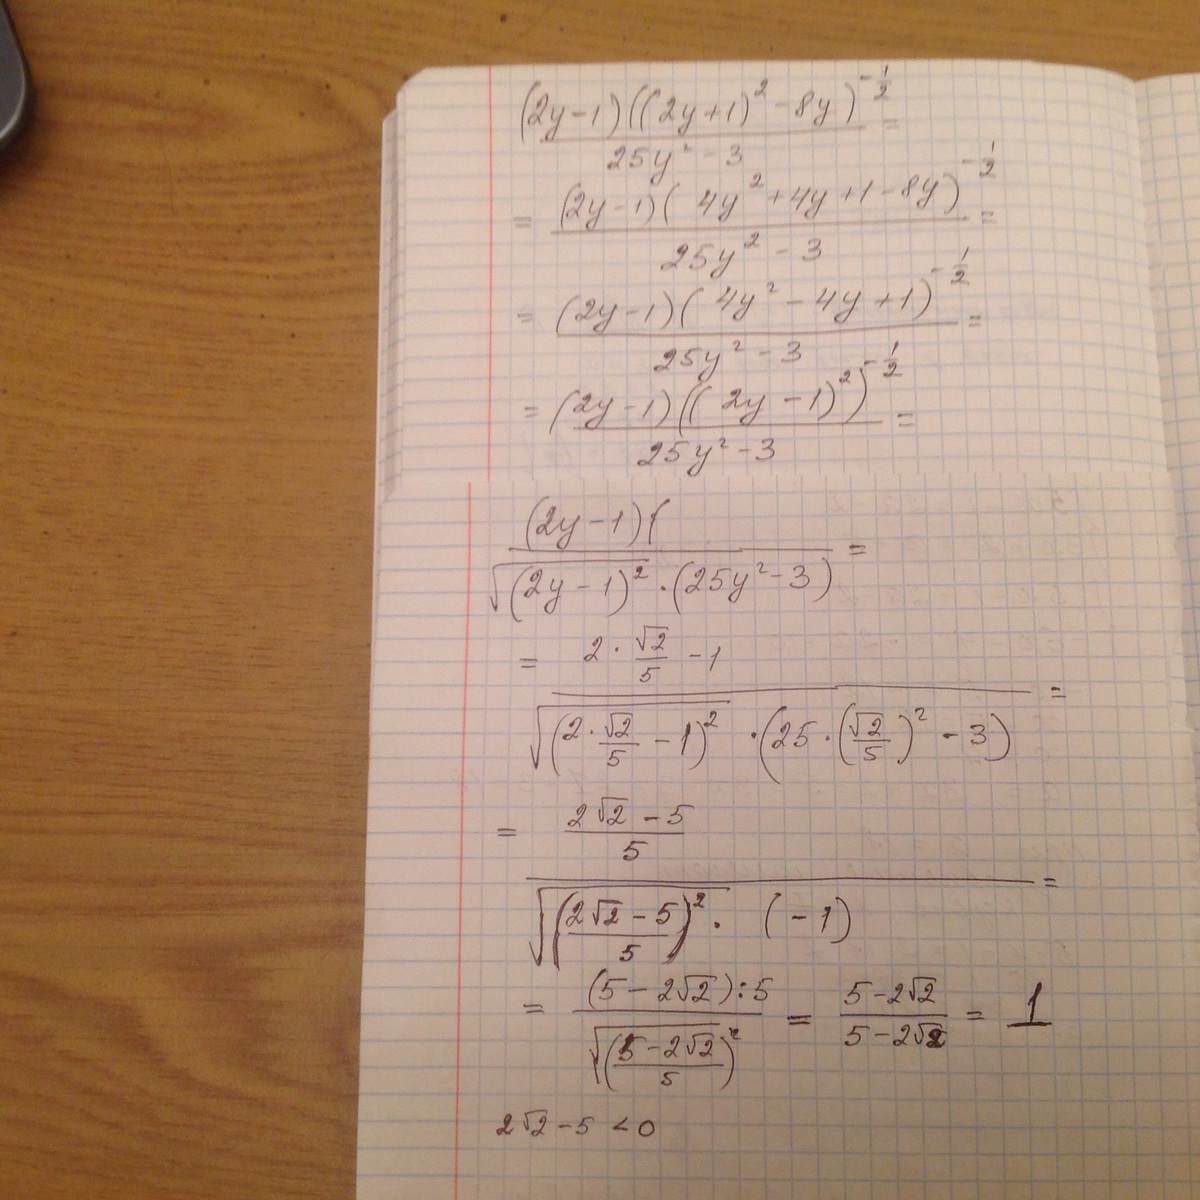 ((2y-1)((2y+1)²-8y)^(-1/2))/(25y²-3) =
= ((2y-1)(4y²+4y+1-8y)^(-1/2))/(25y²-3) =
= ((2y-1)(4y²-4y+1)^(-1/2))/(25y²-3) =
= ((2y-1)((2y-1)²)^(-1/2))/(25y²-3) =
(2y-1)(/(√((2y-1)²)·(25y²-3)) =
= (2·√2/5-1)/(√((2·√2/5-1)²)·(25·(√2/5)²-3)) =
= ((2√2-5)/5)/(√(((2√2-5)/5)²)·(-1)) =
= ((5-2√2):5)/√(((5-2√2)/5)²) = (5-2√2)/(5-2√2) = 1
2√2-5<0